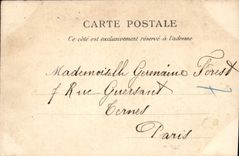 CARTE POSTALE
Ce côté est exclusivement réservé à l'adresse
Mademoiselle Germaine Forest
7 Rue Guersant
Ternes
Paris